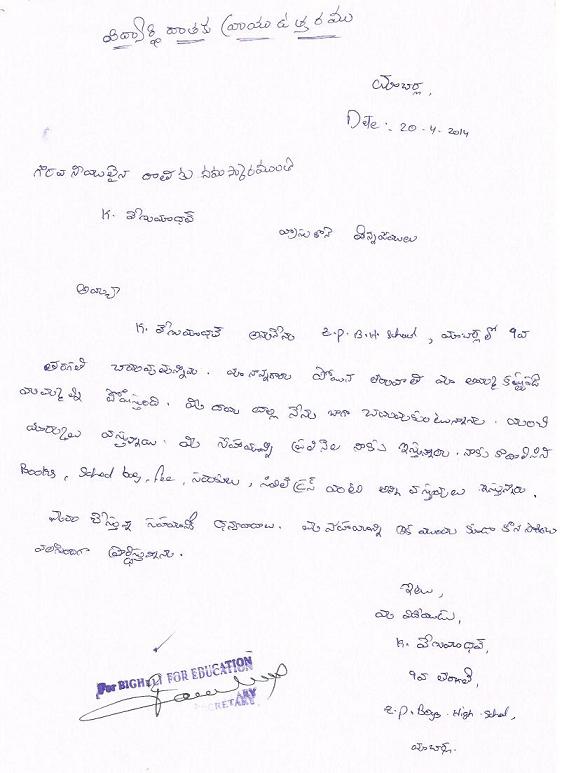 విద్యార్థి దాతకు వ్రాయు ఉత్తరము
యాంబర్ల,
Date:- 20-4-2014
గౌరవనీయులైన దాతకు నమస్కారములతో
K. వేణుమాధవ్
వ్రాసుకొనే విన్నపములు
అయ్యా
K. వేణుమాధవ్ అనునేను z.p.B.H. School, లో 9వ
తరగతి చదువుచున్నాను. మా నాన్నగారు పోయిన తరువాత మా అమ్మ కష్టపడి
మమ్మల్ని పోషిస్తుంది. మీ దయ వల్ల నేను బాగా చదువుకుంటున్నాను. మంచి
మార్కులు వస్తున్నాయి. మీ సహాయాన్ని ప్రతినెల నాకు ఇస్తున్నారు. నాకు కావలసిన
Books, School bag, fee, సరుకులు, వంటి అన్ని వస్తువులు ఇస్తున్నారు.
మీరు చేస్తున్న సహాయానికి ధన్యవాదాలు. మీ సహాయాన్ని ఇక ముందు కూడా కొనసాగించ
వలసిందిగా ప్రార్థిస్తున్నాను.
ఇట్లు,
మీ విధేయుడు,
K. వేణుమాధవ్,
9వ తరగతి,
z.p. Boys. High. School,
For BIGHELP FOR EDUCATION
SECRETARY